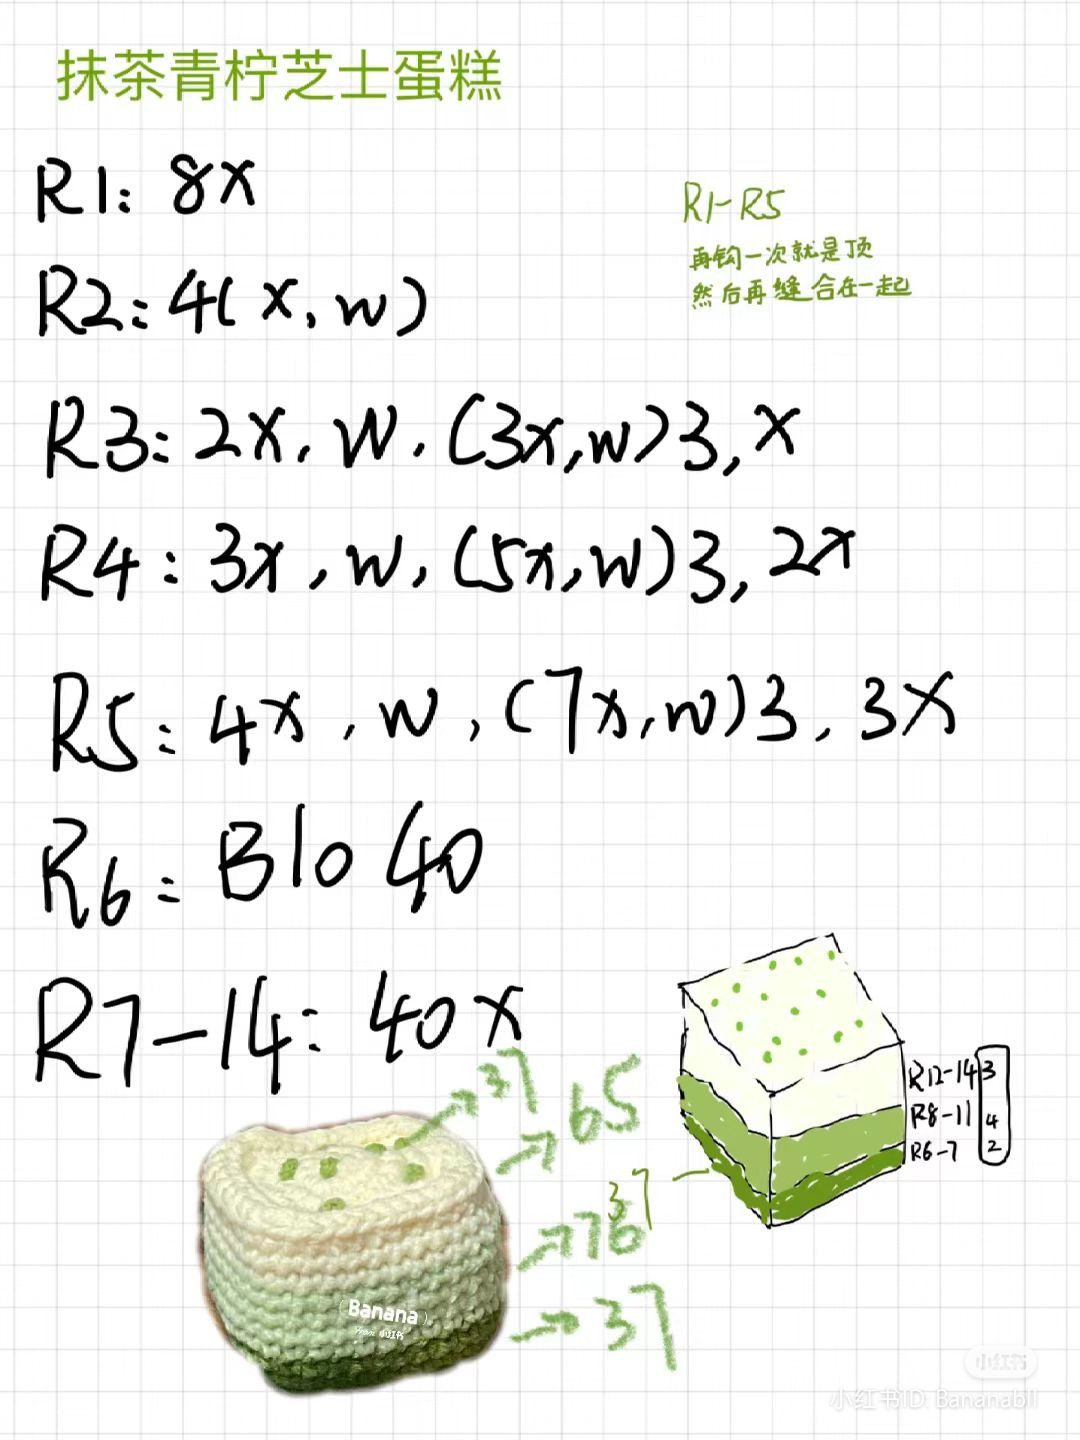 抹茶青柠芝士蛋糕
R1: 8x
R2: 4(x, w)
R3: 2x, w, (3x, w)3, x
R4: 3x, w, (5x, w)3, 2x
R5: 4x, w, (7x, w)3, 3x
R6: Blo 40
R7-14: 40x
R1-R5
再钩一次就是顶
然后再缝合在一起
37
65
76
37
37
R12-14 3
R8-11 4
R6-7 2
Banana
From 小红书
小红书
小红书ID: Bananabll